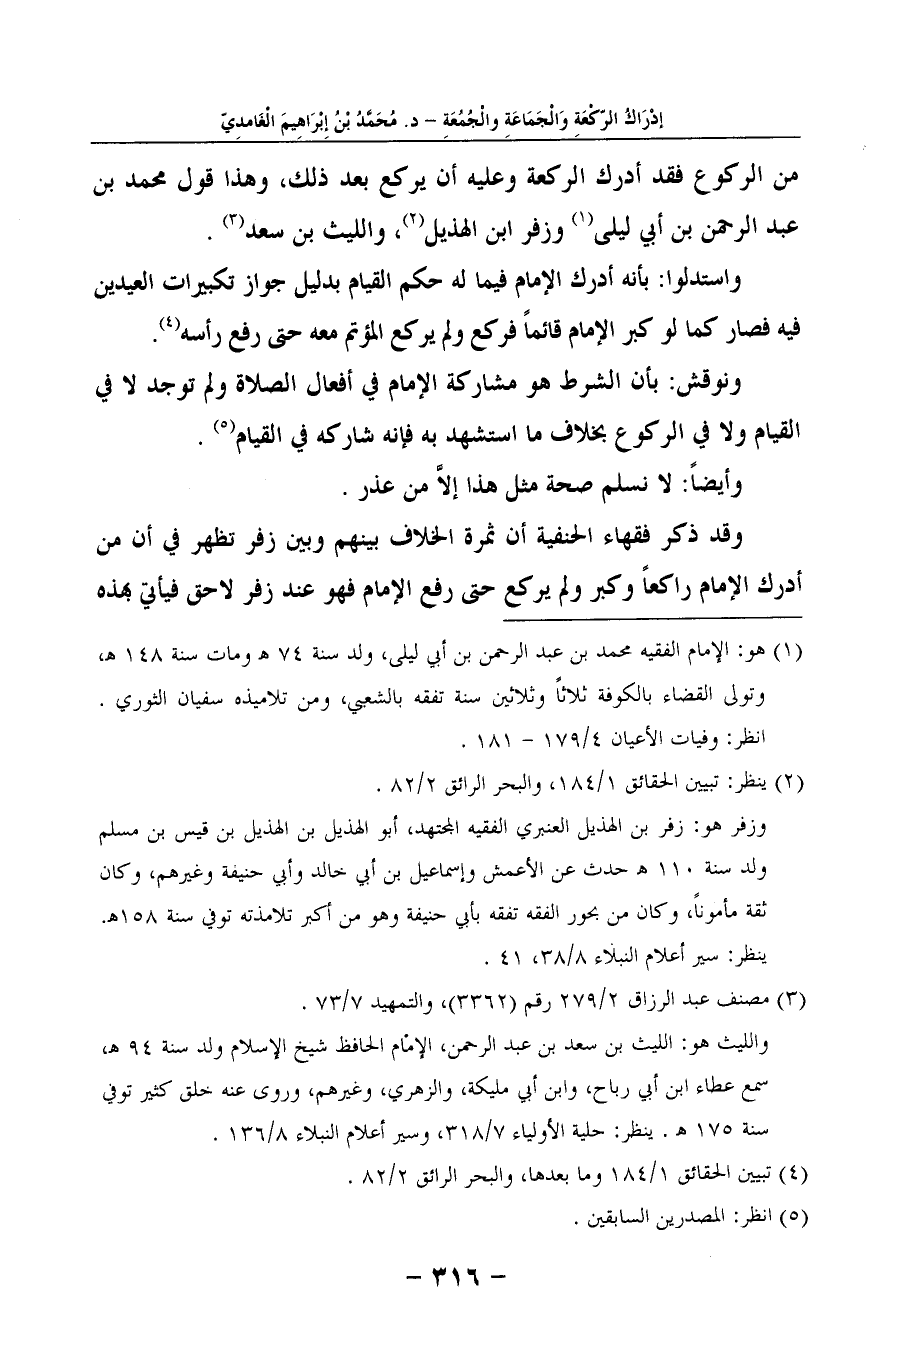 إِدْرَاكُ الرَّكْعَةِ وَالْجَمَاعَةِ والْجُمُعَةِ – د. مُحَمَّدُ بْنُ إِبْرَاهِيمَ الْغَامديّ
من الركوع فقد أدرك الركعة وعليه أن يركع بعد ذلك، وهذا قول محمد بن
عبد الرحمن بن أبي ليلى(١) وزفر ابن الهذيل(٢)، والليث بن سعد(٣) .
واستدلوا: بأنه أدرك الإمام فيما له حكم القيام بدليل جواز تكبيرات العيدين
فيه فصار كما لو كبر الإمام قائماً فركع ولم يركع المؤتم معه حتى رفع رأسه(٤).
ونوقش: بأن الشرط هو مشاركة الإمام في أفعال الصلاة ولم توجد لا في
القيام ولا في الركوع بخلاف ما استشهد به فإنه شاركه في القيام(٥) .
وأيضاً: لا نسلم صحة مثل هذا إلاَّ من عذر .
وقد ذكر فقهاء الحنفية أن ثمرة الخلاف بينهم وبين زفر تظهر في أن من
أدرك الإمام راكعاً وكبر ولم يركع حتى رفع الإمام فهو عند زفر لاحق فيأتي بهذه
(١) هو: الإمام الفقيه محمد بن عبد الرحمن بن أبي ليلى، ولد سنة ٧٤ هـ ومات سنة ١٤٨ هـ،
وتولى القضاء بالكوفة ثلاثاً وثلاثين سنة تفقه بالشعبي، ومن تلاميذه سفيان الثوري .
انظر: وفيات الأعيان ١٧٩/٤ – ١٨١ .
(٢) ينظر: تبيين الحقائق ١٨٤/١، والبحر الرائق ٨٢/٢ .
وزفر هو: زفر بن الهذيل العنبري الفقيه المجتهد، أبو الهذيل بن الهذيل بن قيس بن مسلم
ولد سنة ١١٠ هـ حدث عن الأعمش وإسماعيل بن أبي خالد وأبي حنيفة وغيرهم، وكان
ثقة مأموناً، وكان من بحور الفقه تفقه بأبي حنيفة وهو من أكبر تلامذته توفي سنة ١٥٨هـ.
ينظر: سير أعلام النبلاء ٣٨/٨، ٤١ .
(٣) مصنف عبد الرزاق ٢٧٩/٢ رقم (٣٣٦٢)، والتمهيد ٧٣/٧ .
والليث هو: الليث بن سعد بن عبد الرحمن، الإمام الحافظ شيخ الإسلام ولد سنة ٩٤ هـ،
سمع عطاء ابن أبي رباح، وابن أبي مليكة، والزهري، وغيرهم، وروى عنه خلق كثير توفي
سنة ١٧٥ هـ . ينظر: حلية الأولياء ٣١٨/٧، وسير أعلام النبلاء ١٣٦/٨ .
(٤) تبيين الحقائق ١٨٤/١ وما بعدها، والبحر الرائق ٨٢/٢ .
(٥) انظر: المصدرين السابقين .
– ٣١٦ –